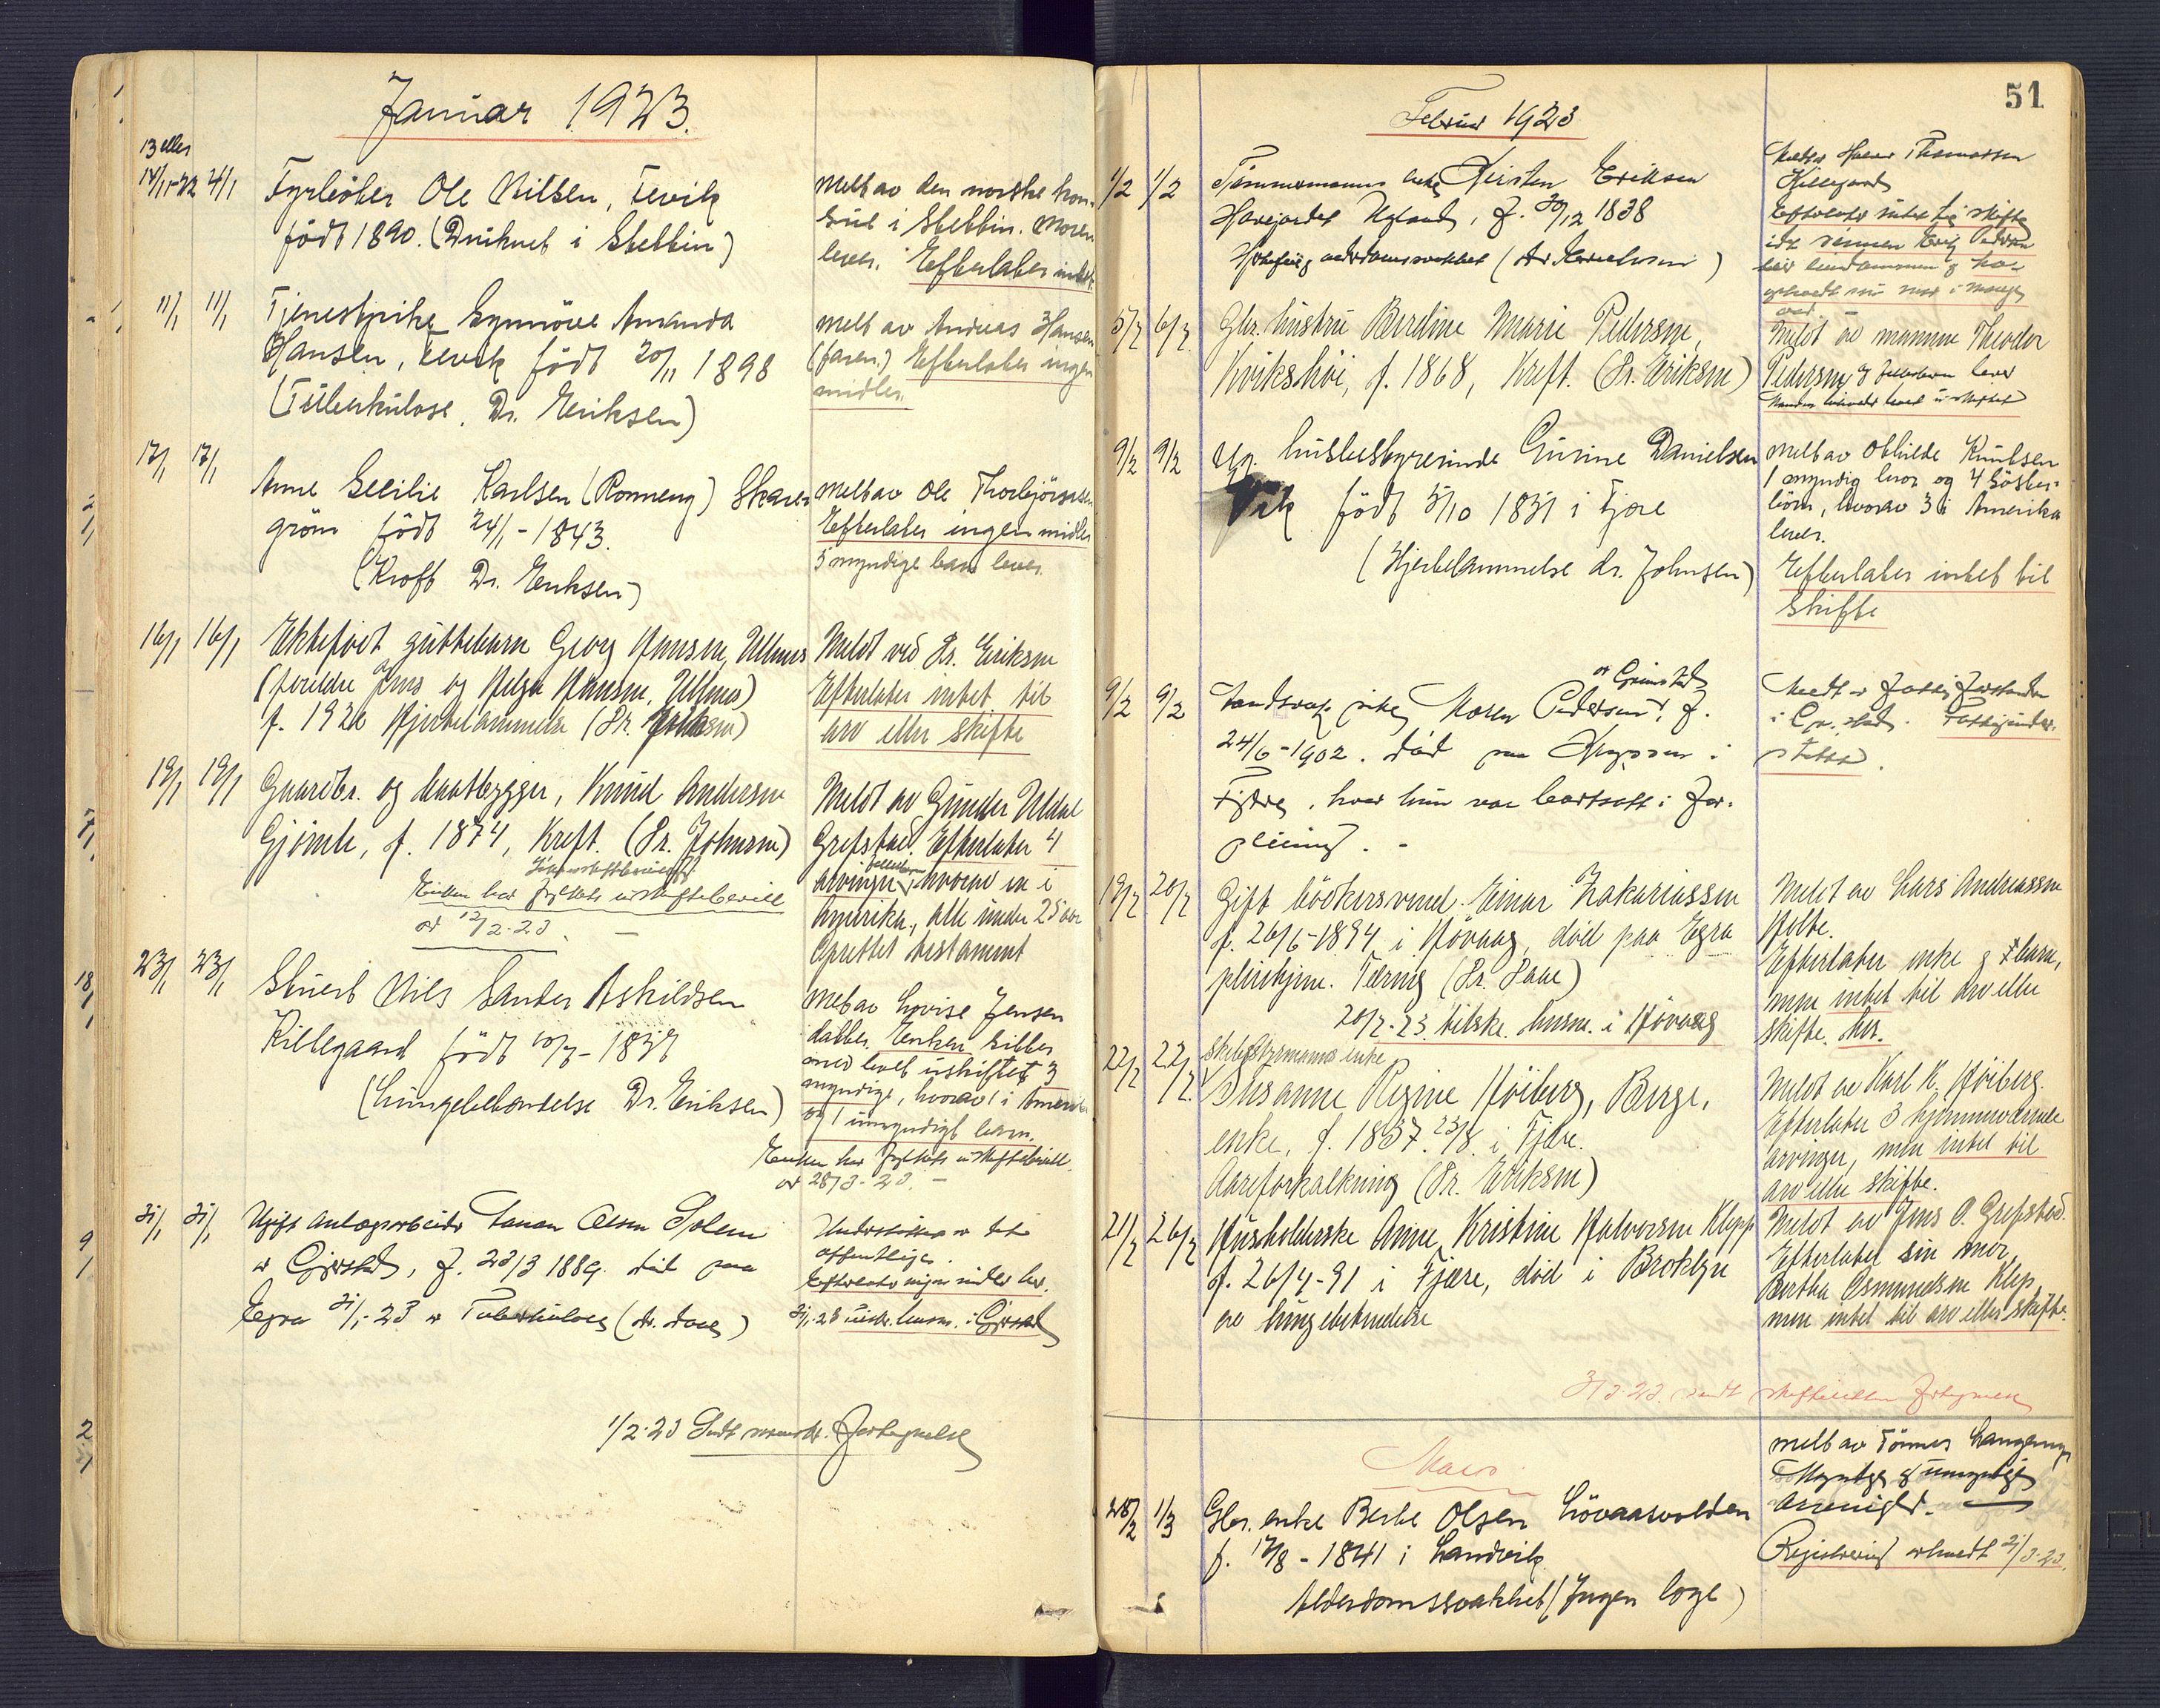 Januar 1923.
13 eller
14/11-22 4/1 Fyrböter Ole Nilsen, Fevik
født 1890. (Druknet i Stettin)
melt av den norske kon-
sul i Stettin. Moren
lever. Efterlater intet.
11/1 11/1 Tjenestpike Synnöve Amanda
Hansen, Fevik født 20/11 1898
(Tuberkulose. Dr. Eriksen)
melt av Andreas Hansen
(faren.) Efterlater ingen
midler.
17/1 17/1 Anne Cecilie Karlsen (Ronneng) Skaren-
gröm født 24/1-1843.
(Kræft Dr. Eriksen)
melt av Ole Thorbjörnsen
Efterlater ingen midler
5 myndige barn lever.
16/1 16/1 Ektefødt guttebarn Georg Hansen,
(foreldre Jens og Helga Hansen,
f. 1922 Hjertelammelse (Dr. Eriksen)
Meldt ved Dr. Eriksen
Efterlater intet til
arv eller skifte
19/1 19/1 Gaardbr. og baatbygger, Knud Andersen
Gjömle, f. 1874, Kreft. (Dr. Johnsen)
Enken har uskiftebevill
av 12/2-23.
Meldt av Gunder Uldal
Grefstad. Efterlater 4
arvinger, hvorav en i
Amerika, alle under 25 aar
Oprettet testament
23/1 23/1 Stuert Nils Sander Askildsen
Killegaard født
(Lungebetendelse Dr. Eriksen)
melt av Lovise Jensen
datter. Enken sitter
med levet uskiftet, 3
myndige, hvorav 1 i Amerika
og 1 umyndigt barn.
Enken har uskiftebevill.
av 28/3-23.
31/1 31/1 Ugift Anlægsarbeider Olsen Solem
av Gjerstad, f. 23/3 1889. död paa
Egra 31/1-23 av Tuberkulose (dr. Aaas)
Understöttes av det
offentlige.
Efterlater ingen midler her.
31/1-23 i Gjerstad
1/2-23 Sendt Fortegnelse
51
Februar 1923
1/2 1/2 Tömmermanns enke Kirsten Eriksen
Ugland, f. 30/12 1838
alderdomssvakhet
Meldt Thomassen
Hillegaard
Efterlater intet til skifte
idet sönnen Pedersen
5/2 6/2 Gbr. hustru Berdine Marie Pedersen,
Kvikshöi, f. 1868, Kreft. (Dr. Eriksen)
Meldt av mannen Theodor
Pedersen, og lever
9/2 9/2 Ug. husbestyrerinde Gurine Danielsen
Vik født 5/10 1831 i Fjære
(Hjertelammelse dr. Johnsen)
melt av Othilde Knutsen
1 myndig bror og 4 Søster-
börn, hvorav 3 i Amerika
lever.
Efterlater intet til
Skifte
9/2 9/2 pike Maren Pedersen, f.
av Grimstad
24/6-1902. död paa i
Fjære, hvor hun var bortsatt i for-
pleining.
Meldt av Fattigforstander
i Gr.stad. Fattigunder-
støttet.
19/2 20/2 Gift bödkersvend Einar Zakariassen
f. 26/6-1894 i Hövaag, död paa Egra
pleiehjem. Tæring (Dr. Aaas)
20/2-23 tilskr. lensm. i Hövaag
Meldt av Lars Andreassen
Holte.
Efterlater enke og barn,
men intet til arv eller
skifte. her.
22/2 22/2 Skibsstyrmanns enke
Susanne Regine Höiberg, Berge,
enke, f. 1837. 23/8 i Fjære.
Aareforkalkning (Dr. Eriksen)
Meldt av Karl K. Höiberg.
Efterlater 3 hjemmeværende
arvinger, men intet til
arv eller skifte.
21/2 26/2 Husholderske Anne Kristine Halvorsen Klepp
f. 26/4-91 i Fjære, död i Broklyn
av lungebetendelse
Meldt av Jens O. Grefstad.
Efterlater sin mor,
Bertha Osmundsen Klep,
men intet til arv eller skifte.
3/3-23. sendt skifteretten Fortegnelse
Mars
28/2 1/3 Gbr. enke Berte Olsen Lövaasvolden
f. 12/8-1841 i Landvik
Alderdomssvakhet (Ingen læge)
melt av Tönnes
Myndige og umyndige
Arvinger.
Registrering avholdt 21/3-23.